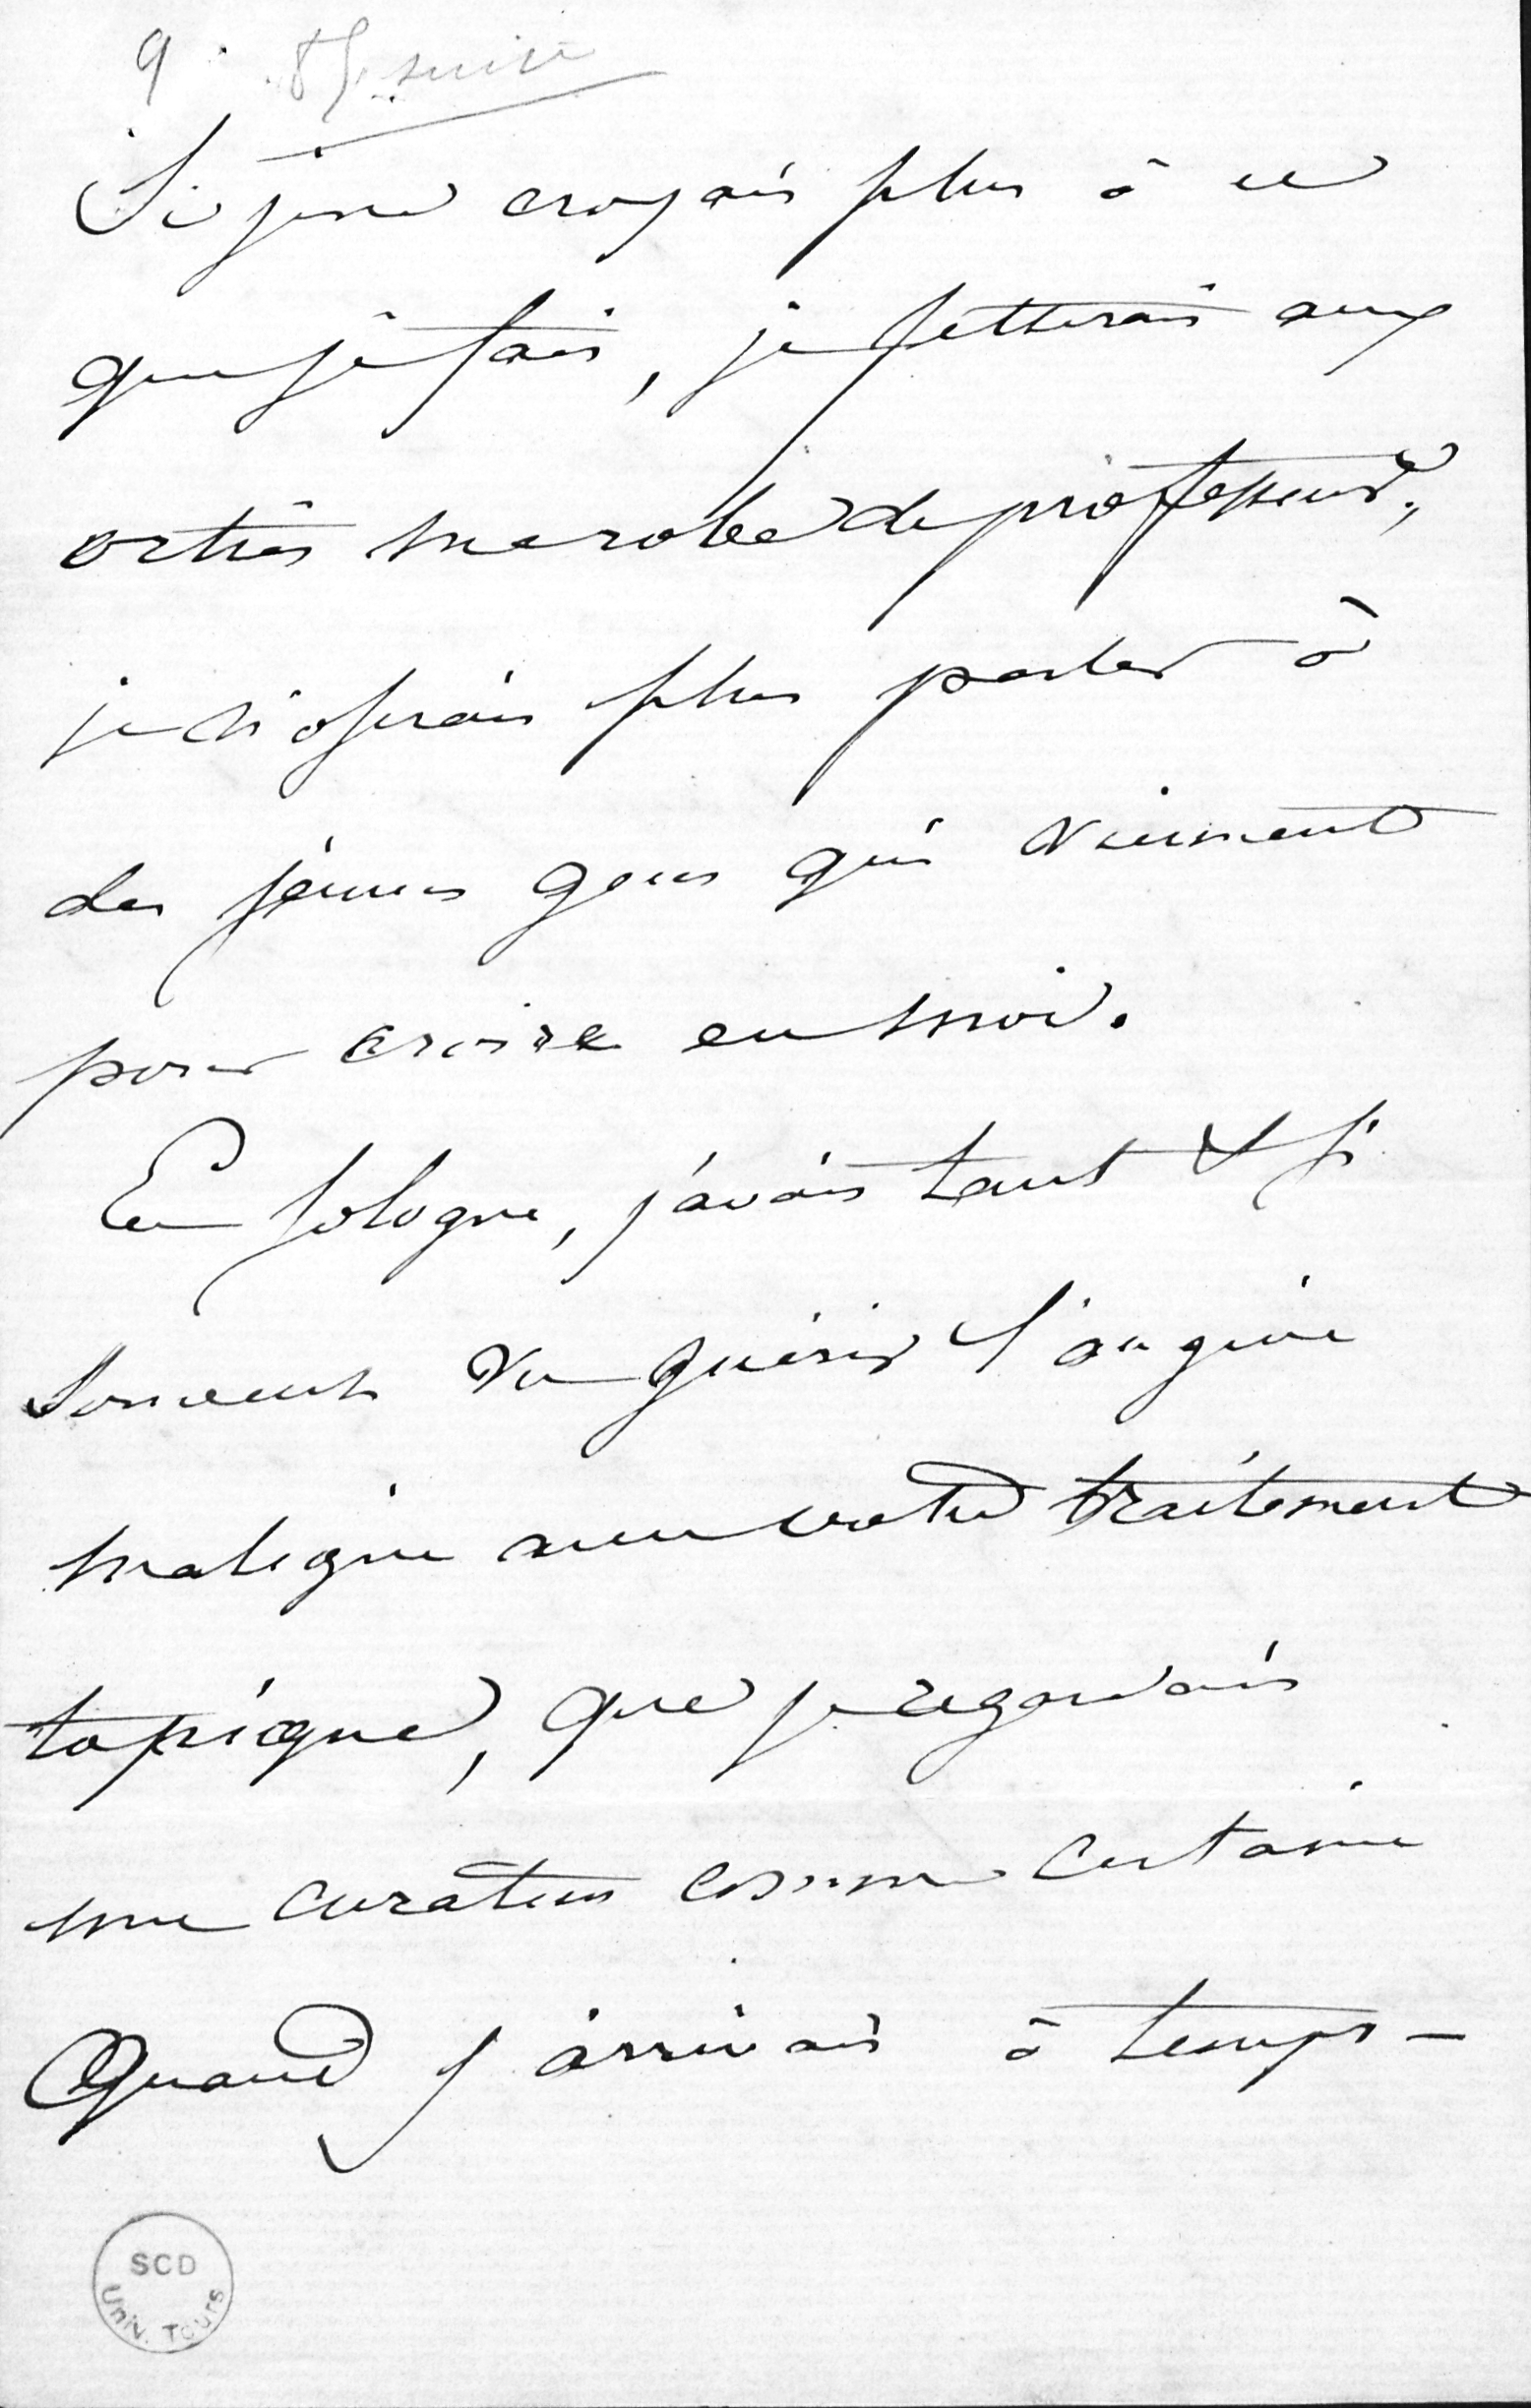 9. 85 suite
Si je ne croyais plus à ce
que je fais, je jetterais aux
orties ma robe de professeur,
je n'oserais plus parler à
des jeunes gens qui viennent
pour croire en moi.
En Sologne, j'avais tant et si
souvent vu guérir l'angine
maligne avec votre traitement
topique, que je regardais
une curation comme certaine
Quand j'arrivais à temps -
SCD
Univ. Tours